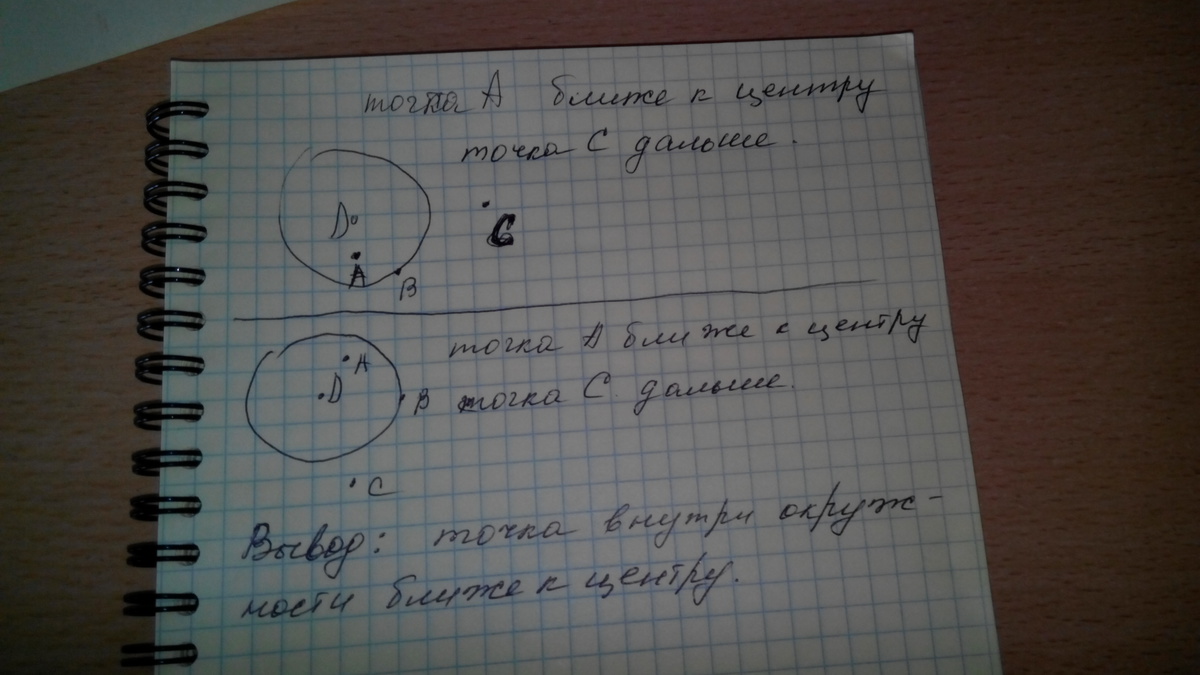 точка А ближе к центру
точка С дальше.
D
С
А
В
точка А ближе к центру
А
D
В
точка С. дальше.
С
Вывод: точка внутри окруж-
ности ближе к центру.